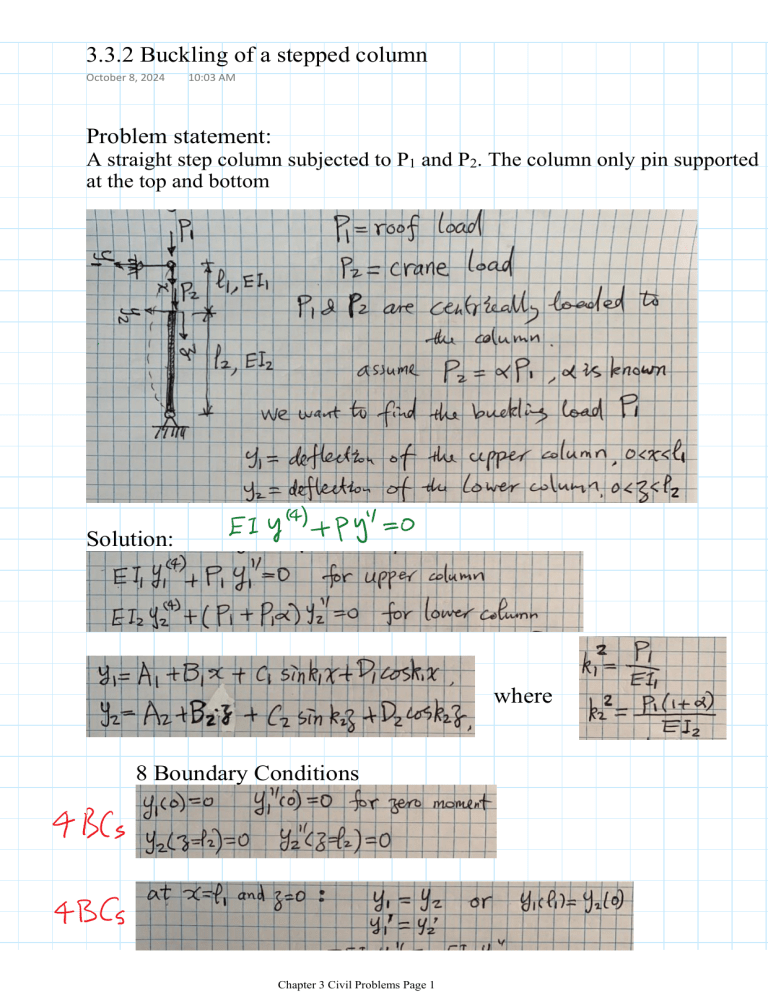 3.3.2 Buckling of a stepped column
October 8, 2024 10:03 AM
Problem statement:
A straight step column subjected to P₁ and P₂. The column only pin supported
at the top and bottom
P₁
y₁
x
P₂
l₁, EI₁
y₂
z
l₂, EI₂
P₁ = roof load
P₂ = crane load
P₁ & P₂ are centrically loaded to
the column.
assume P₂ = αP₁, α is known
we want to find the buckling load P₁
y₁ = deflection of the upper column, 0<x<l₁
y₂ = deflection of the lower column, 0<z<l₂
Solution:
EI y⁽⁴⁾ + Py'' = 0
EI₁ y₁⁽⁴⁾ + P₁ y₁'' = 0 for upper column
EI₂ y₂⁽⁴⁾ + (P₁ + P₁α) y₂'' = 0 for lower column
y₁ = A₁ + B₁x + C₁ sin k₁x + D₁ cos k₁x,
y₂ = A₂ + B₂z + C₂ sin k₂z + D₂ cos k₂z,
where
k₁² = P₁/EI₁
k₂² = P₁(1+α)/EI₂
8 Boundary Conditions
4 BCs
y₁(0)=0 y₁''(0)=0 for zero moment
y₂(z=l₂)=0 y₂''(z=l₂)=0
4 BCs
at x=l₁ and z=0 : y₁ = y₂ or y₁(l₁) = y₂(0)
y₁' = y₂'
Chapter 3 Civil Problems Page 1